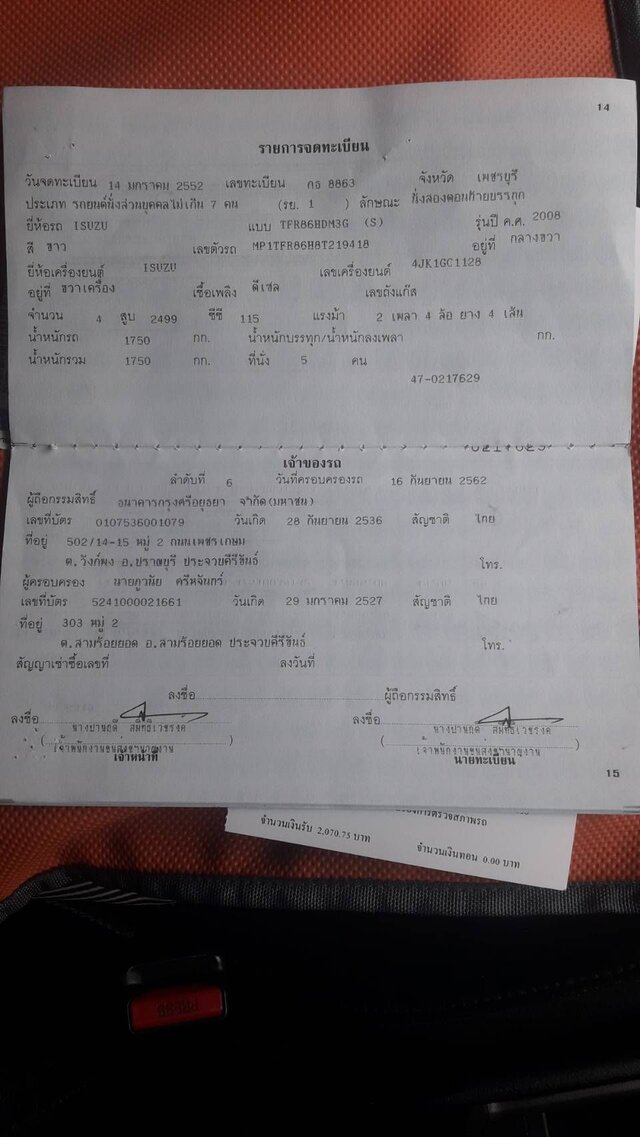 14
รายการจดทะเบียน
วันจดทะเบียน 14 มกราคม 2552 เลขทะเบียน กธ 8863 จังหวัด เพชรบุรี
ประเภท รถยนต์นั่งส่วนบุคคลไม่เกิน 7 คน (รย. 1 ) ลักษณะ นั่งสองตอนท้ายบรรทุก
ยี่ห้อรถ ISUZU แบบ TFR86HDM3G (S) รุ่นปี ค.ศ. 2008
สี ขาว เลขตัวรถ MP1TFR86H8T219418 อยู่ที่ กลางขวา
ยี่ห้อเครื่องยนต์ ISUZU เลขเครื่องยนต์ 4JK1GC1128
อยู่ที่ ขวาเครื่อง เชื้อเพลิง ดีเซล เลขถังแก๊ส
จำนวน 4 สูบ 2499 ซีซี 115 แรงม้า 2 เพลา 4 ล้อ ยาง 4 เส้น
น้ำหนักรถ 1750 กก. น้ำหนักบรรทุก/น้ำหนักลงเพลา กก.
น้ำหนักรวม 1750 กก. ที่นั่ง 5 คน
47-0217629
เจ้าของรถ
ลำดับที่ 6 วันที่ครอบครองรถ 16 กันยายน 2562
ผู้ถือกรรมสิทธิ์ ธนาคารกรุงศรีอยุธยา จำกัด(มหาชน)
เลขที่บัตร 0107536001079 วันเกิด 28 กันยายน 2536 สัญชาติ ไทย
ที่อยู่ 502/14-15 หมู่ 2 ถนนเพชรเกษม
ต.วังก์พง อ.ปราณบุรี ประจวบคีรีขันธ์ โทร.
ผู้ครอบครอง นายภูวนัย ศรีหจันทร์
เลขที่บัตร 5241000021661 วันเกิด 29 มกราคม 2527 สัญชาติ ไทย
ที่อยู่ 303 หมู่ 2
ต.สามร้อยยอด อ.สามร้อยยอด ประจวบคีรีขันธ์ โทร.
สัญญาเช่าซื้อเลขที่ ลงวันที่
ลงชื่อ ผู้ถือกรรมสิทธิ์
ลงชื่อ ลงชื่อ
เจ้าพนักงานขนส่งชำนาญงาน เจ้าพนักงานขนส่งชำนาญงาน
เจ้าหน้าที่ นายทะเบียน
15
การตรวจสภาพรถ
จำนวนเงินรับ 2,070.75 บาท จำนวนเงินทอน 0.00 บาท
PRESS